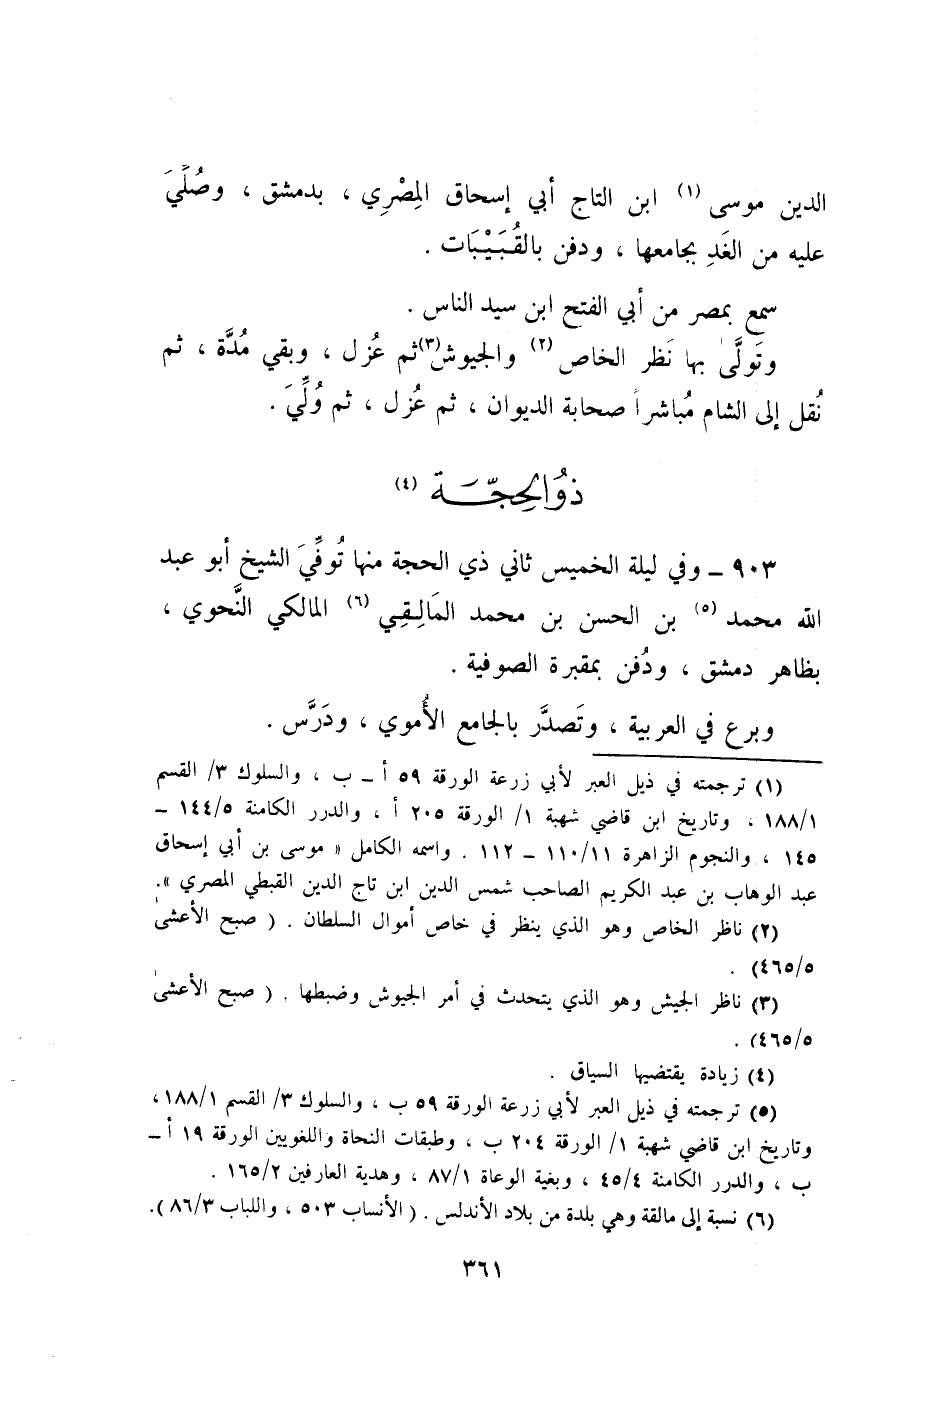 الدين موسى (١) ابن التاج أبي إسحاق المِصْرِي ، بدمشق ، وصُلِّيَ
عليه من الغَدِ بجامعها ، ودفن بالقُبَيْبَات .
سمع بمصر من أبي الفتح ابن سيد الناس .
وتَولَّىٰ بها نَظر الخاص (٢) والجيوش(٣) ثم عُزل ، وبقي مُدَّة ، ثم
نُقل إلى الشام مُباشراً صحابة الديوان ، ثم عُزل ، ثم وُلِّيَ .
ذوُالحِجّـَـة (٤)
٩٠٣ ـ وفي ليلة الخميس ثاني ذي الحجة منها تُوفِّيَ الشيخ أبو عبد
الله محمد (٥) بن الحسن بن محمد المَالِقِي (٦) المالكي النَّحوي ،
بظاهر دمشق ، ودُفن بمقبرة الصوفية .
وبرع في العربية ، وتَصدَّر بالجامع الأُموي ، ودَرَّس .
(١) ترجمته في ذيل العبر لأبي زرعة الورقة ٥٩ أ ـ ب ، والسلوك ٣/ القسم
١٨٨/١ ، وتاريخ ابن قاضي شهبة ١/ الورقة ٢٠٥ أ ، والدرر الكامنة ١٤٤/٥ ـ
١٤٥ ، والنجوم الزاهرة ١١٠/١١ ـ ١١٢ . واسمه الكامل « موسى بن أبي إسحاق
عبد الوهاب بن عبد الكريم الصاحب شمس الدين ابن تاج الدين القبطي المصري ».
(٢) ناظر الخاص وهو الذي ينظر في خاص أموال السلطان . ( صبح الأعشىٰ
٤٦٥/٥) .
(٣) ناظر الجيش وهو الذي يتحدث في أمر الجيوش وضبطها . ( صبح الأعشىٰ
٤٦٥/٥) .
(٤) زيادة يقتضيها السياق .
(٥) ترجمته في ذيل العبر لأبي زرعة الورقة ٥٩ ب ، والسلوك ٣/ القسم ١٨٨/١ ،
وتاريخ ابن قاضي شهبة ١/ الورقة ٢٠٤ ب ، وطبقات النحاة واللغويين الورقة ١٩ أ ـ
ب ، والدرر الكامنة ٤٥/٤ ، وبغية الوعاة ٨٧/١ ، وهدية العارفين ١٦٥/٢ .
(٦) نسبة إلى مالقة وهي بلدة من بلاد الأندلس . ( الأنساب ٥٠٣ ، واللباب ٨٦/٣ ).
٣٦١